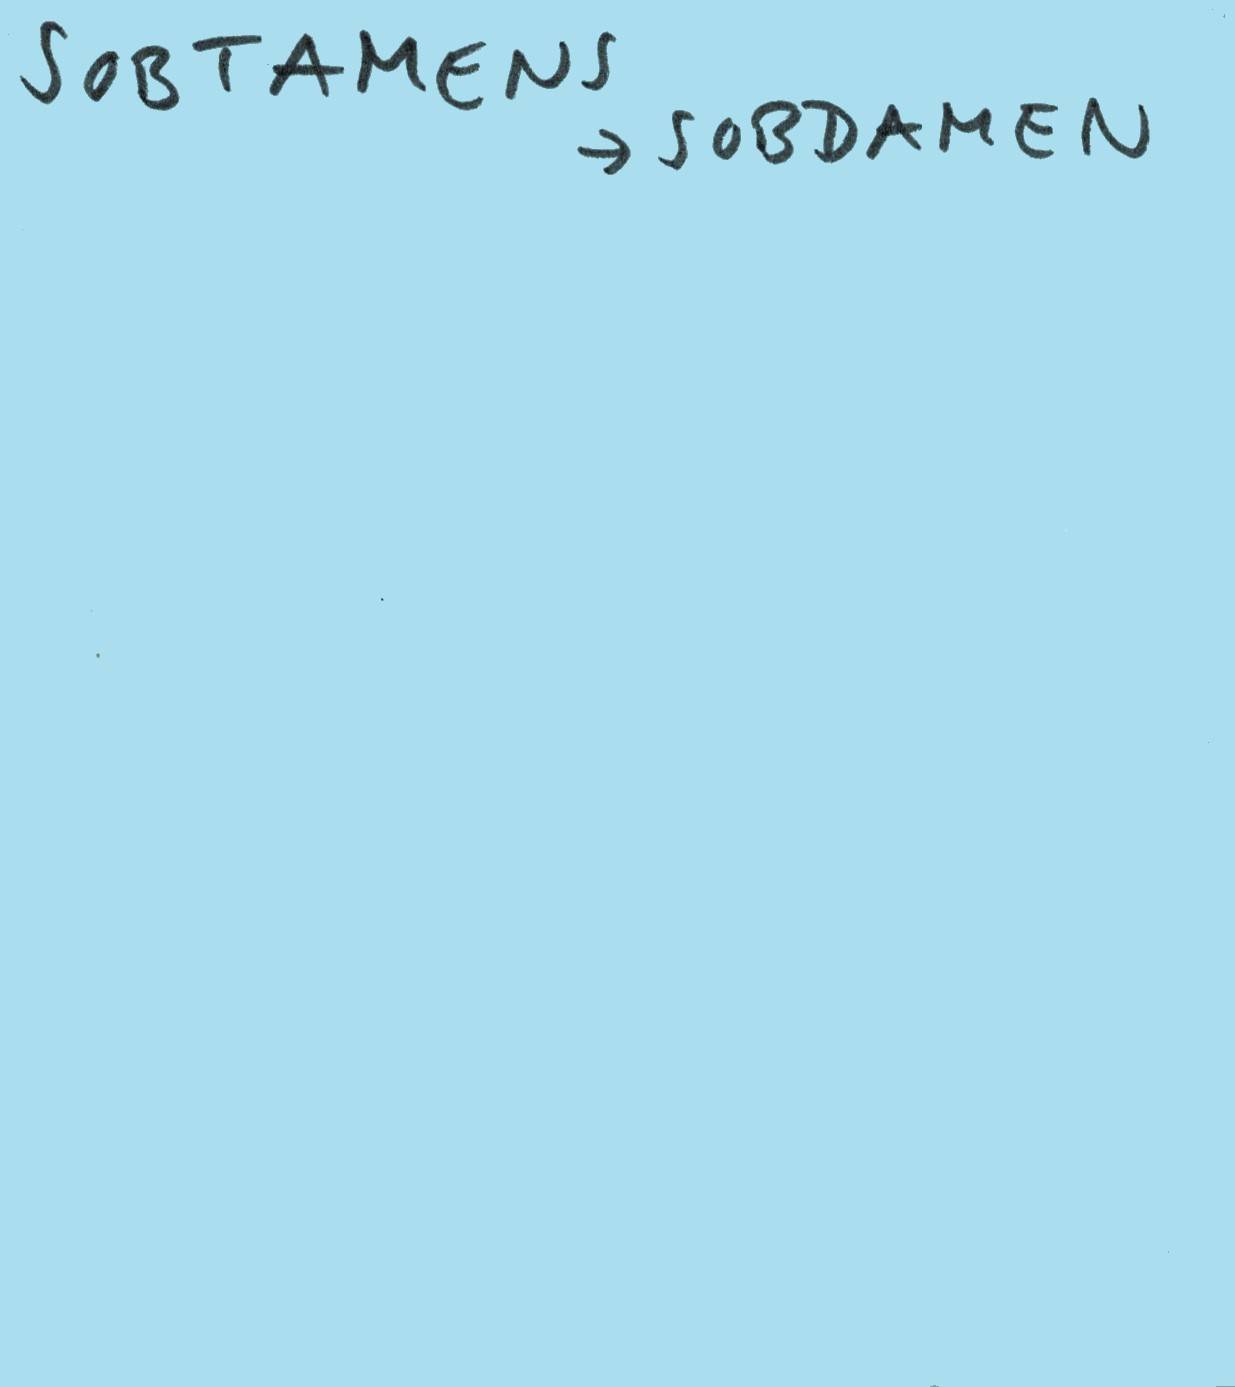 SOBTAMENS
→ SOBDAMEN